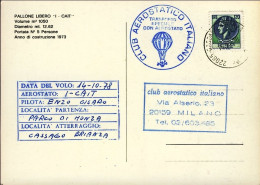 PALLONE LIBERO "I - CAIT"
Volume m³ 1050
Diametro mt. 12.62
Portata N° 5 Persone
Anno di costruzione 1973
CLUB AEROSTATICO ITALIANO
TRASPORTO
SPECIALE
CON AEROSTATO
DATA DEL VOLO: 14-10-78
AEROSTATO: I-CAIT
PILOTA: ENZO CISARO
LOCALITA' PARTENZA:
PARCO DI MONZA
LOCALITA' ATTERRAGGIO:
CASSAGO BRIANZA
club aerostatico italiano
Via Alserio, 23
20159 MILANO